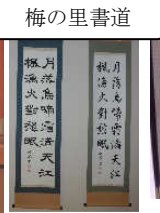 梅の里書道
月落烏啼霜滿天江
楓漁火對愁眠
月落烏啼霜滿天江
楓漁火對愁眠